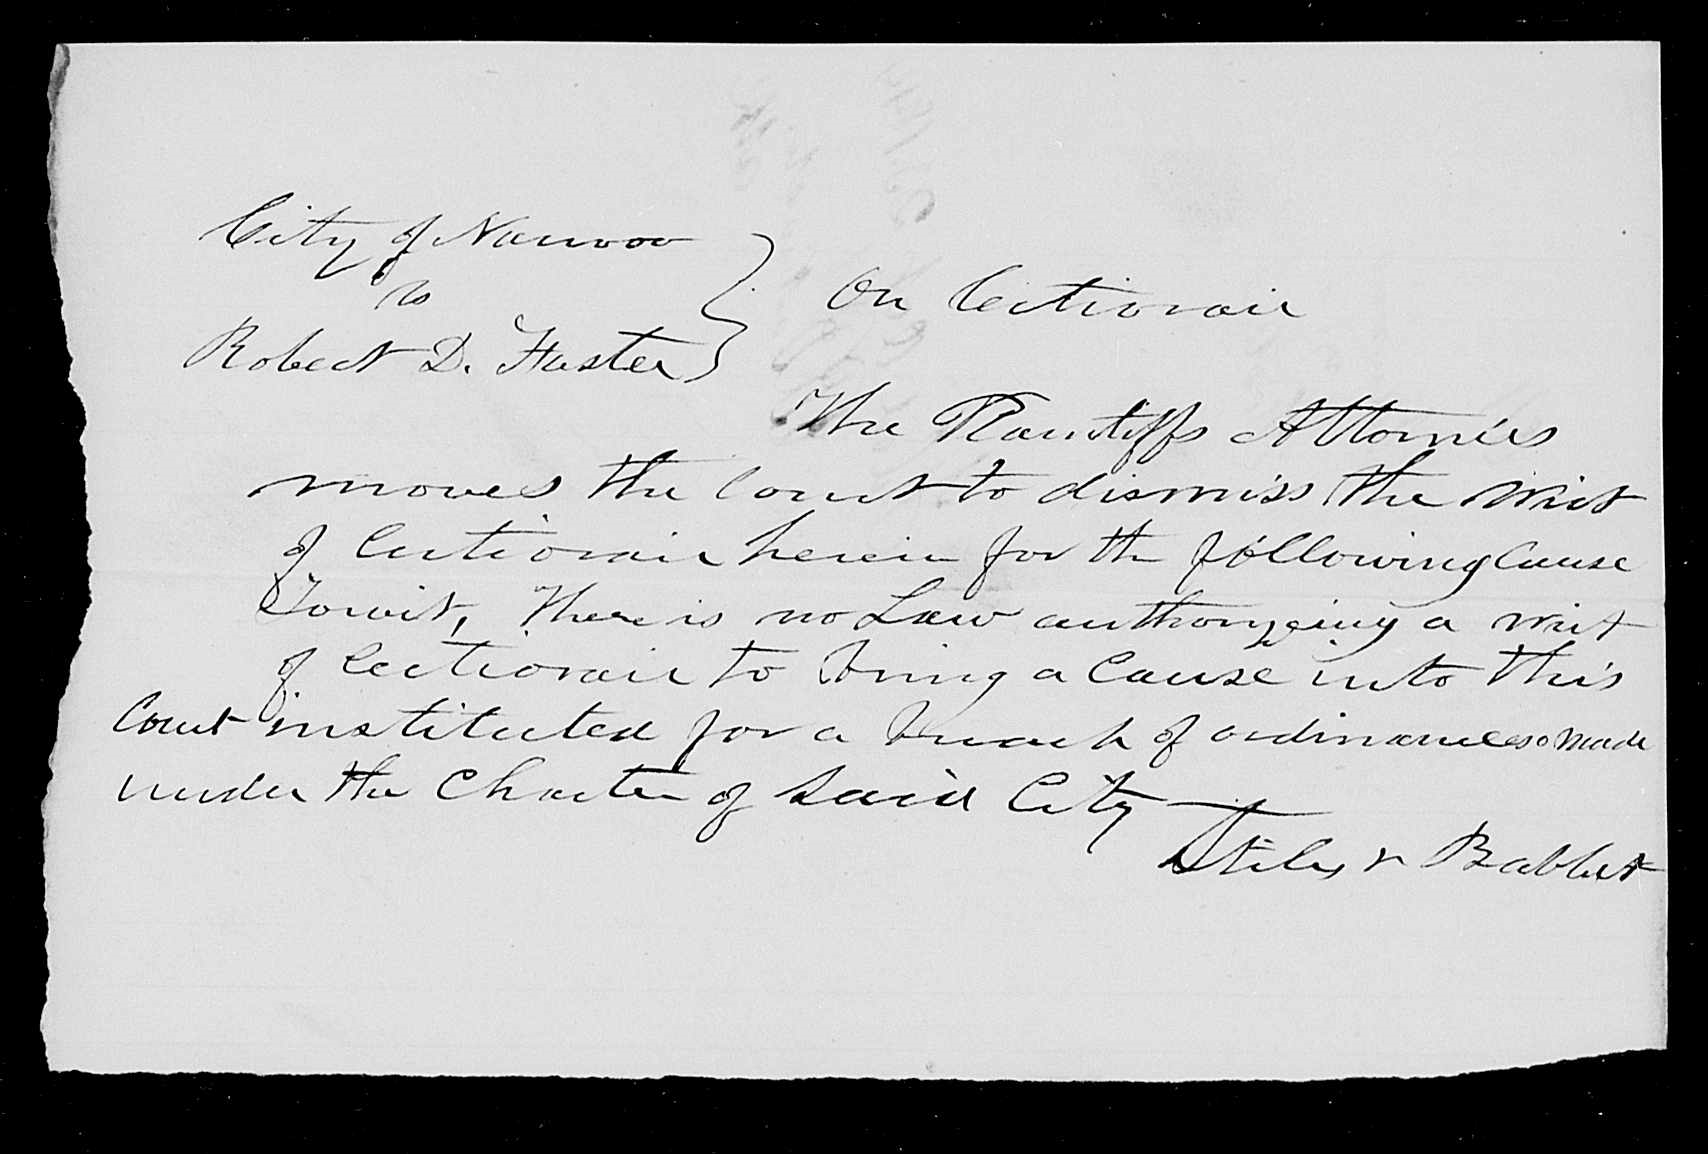 City of Nauvoo
vs
Robert D. Foster
On Certiorari
The Plantiffs Attornies
moves the Court to dismiss the writ
of Certiorari herein for the following Cause
Towit, There is no Law authorizeing a writ
of Certiorari to bring a Cause into this
Court instituted for a breach of ordinances made
under the Charter of Said City
Stiles & Babbit